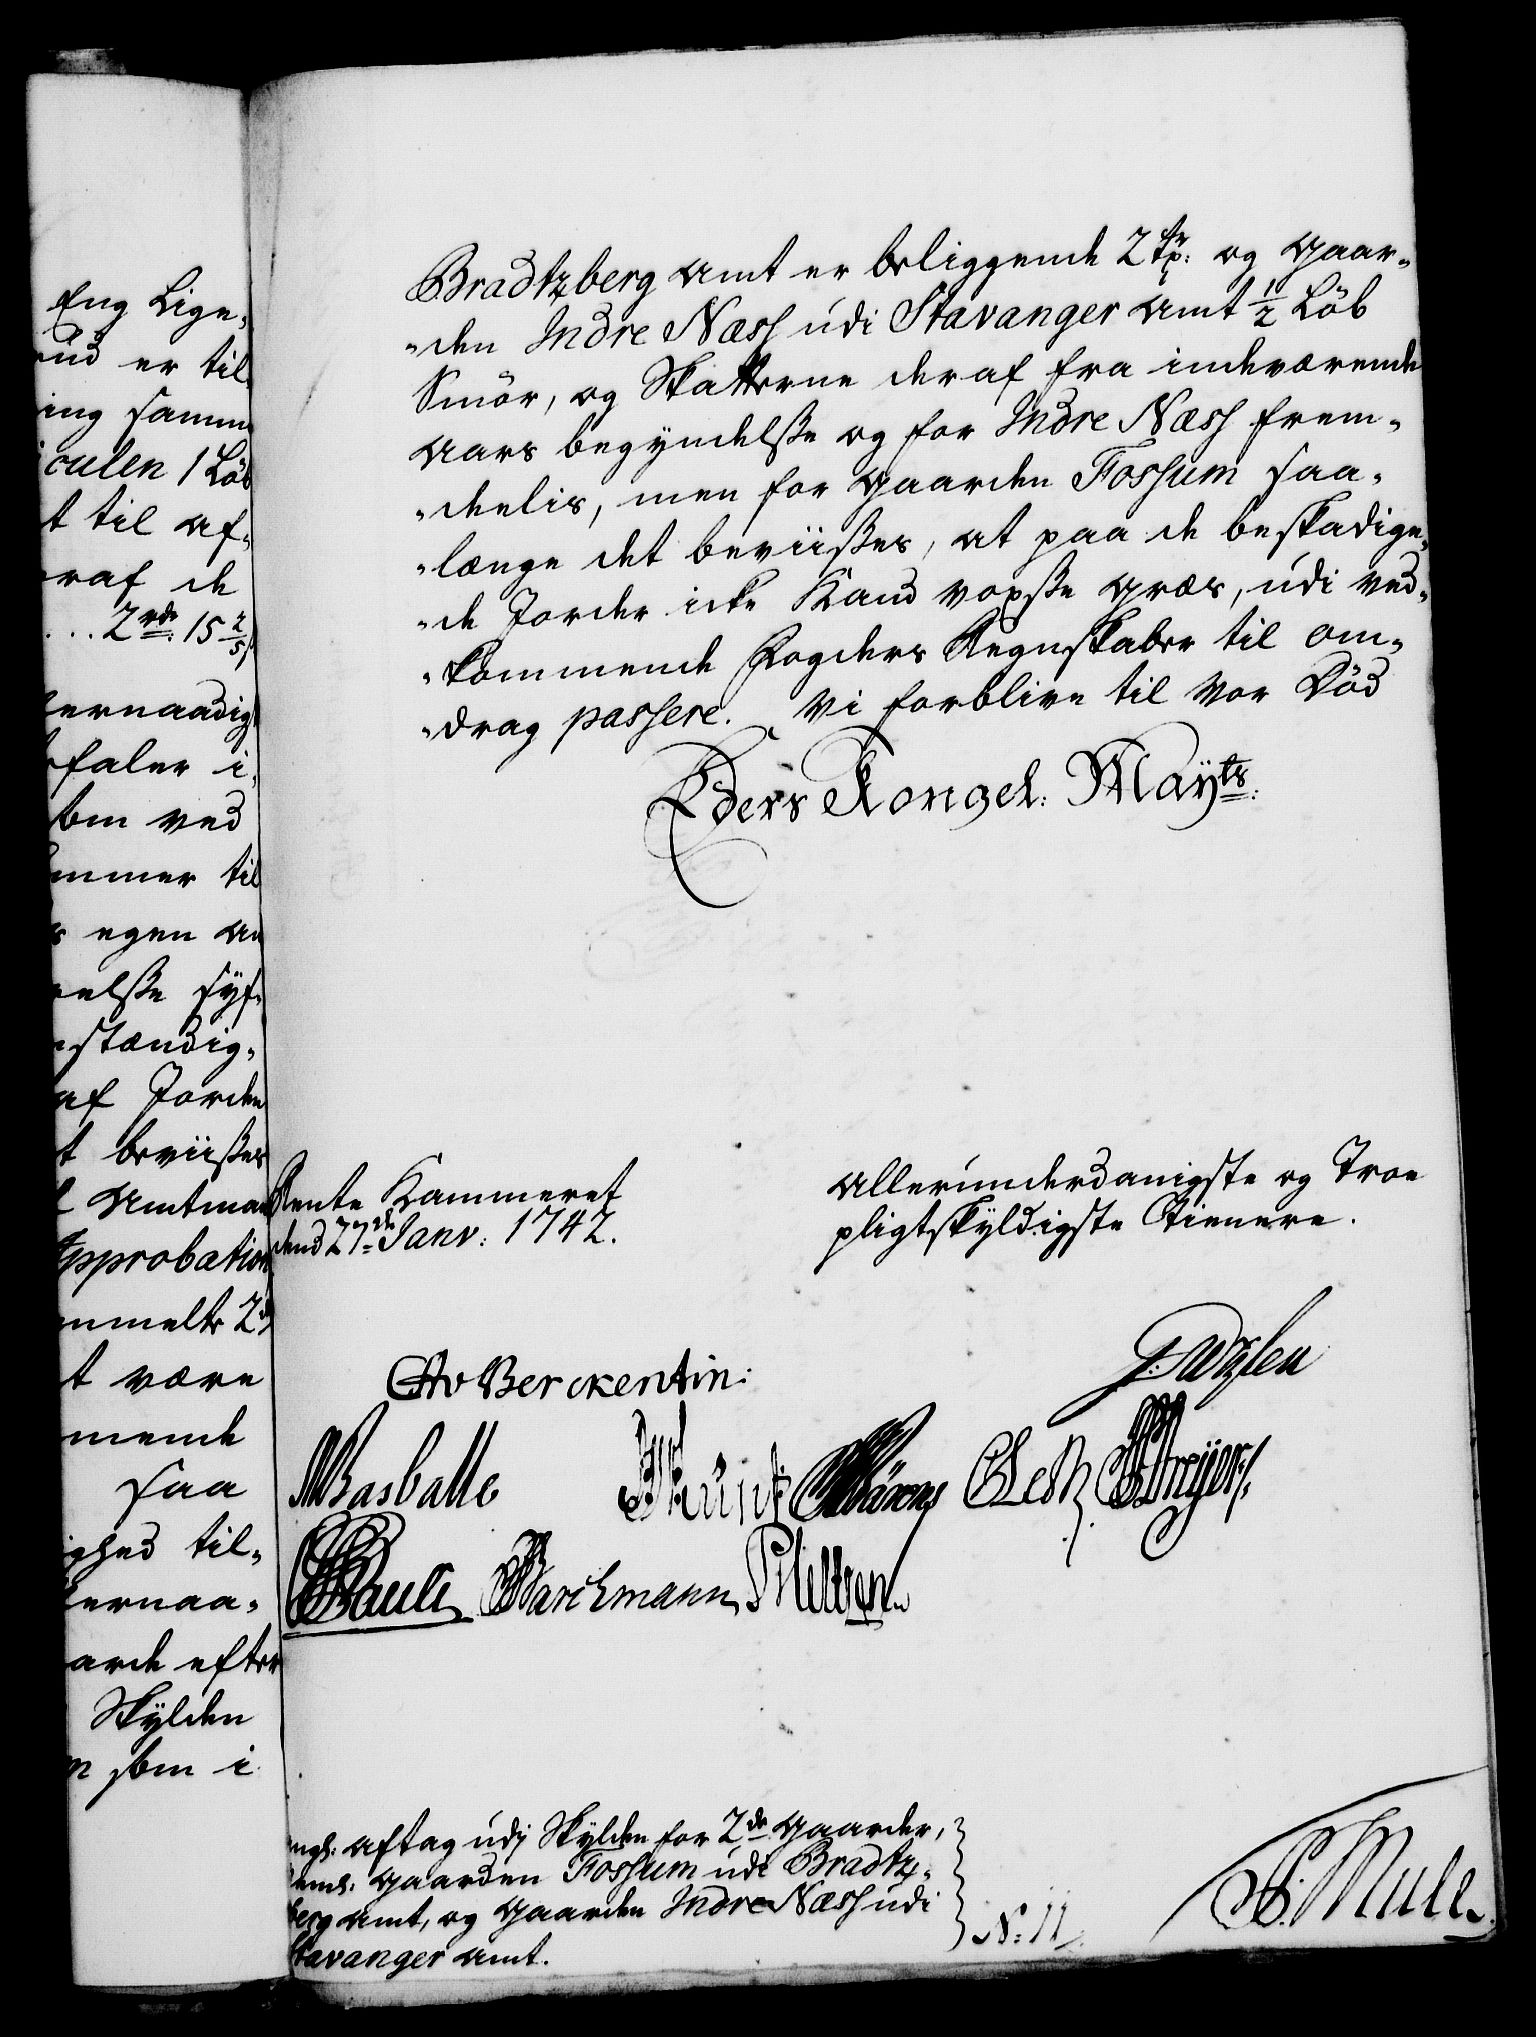 Eng Lige„
er til„
ing samme
culen 1 Löb
t til af„
raf de
... 2 rdr: 15 2/5
lernaadigst
befaler i„
som ved
ommer til
s egen an
else syf„
stændig„
af Jorden
t beviisses
Amtmand
Approbation
anmelte 2de
t være
mende
saa
ighed til„
lernaa„
arde efter
Skylden
n som i
Bradtzberg Amt er beliggende 2 tp: og Gaar„
„den Indre Næss udi Stavanger Amt 1/2 Löb
Smör, og Skatterne deraf fra indeværende
Aars begyndelsse og for Indre Næss frem„
„deelis, men for Gaarden Fossum saa„
„længe det beviisses, at paa de beskadige„
„de Jorder icke Kand voxsse Græs, udi ved„
„kommende Fogders Regnskaber til om„
„drag passere. Vi forblive til Vor Död
Eders Kongel: Mayts:
Rente Kammeret
dend 27de Janv: 1742.
Allerunderdanigste og Troe
pligtskyldigste Tienere.
CAvBerckentin:
JWasballe
CLeth
Pauli
Barchmann
angl: aftag udj Skylden for 2de Gaarder,
neml: Gaarden Fossum udi Bradtz„
berg Amt, og Gaarden Indre Næss udi
Stavanger Amt.
N: 11
Mule